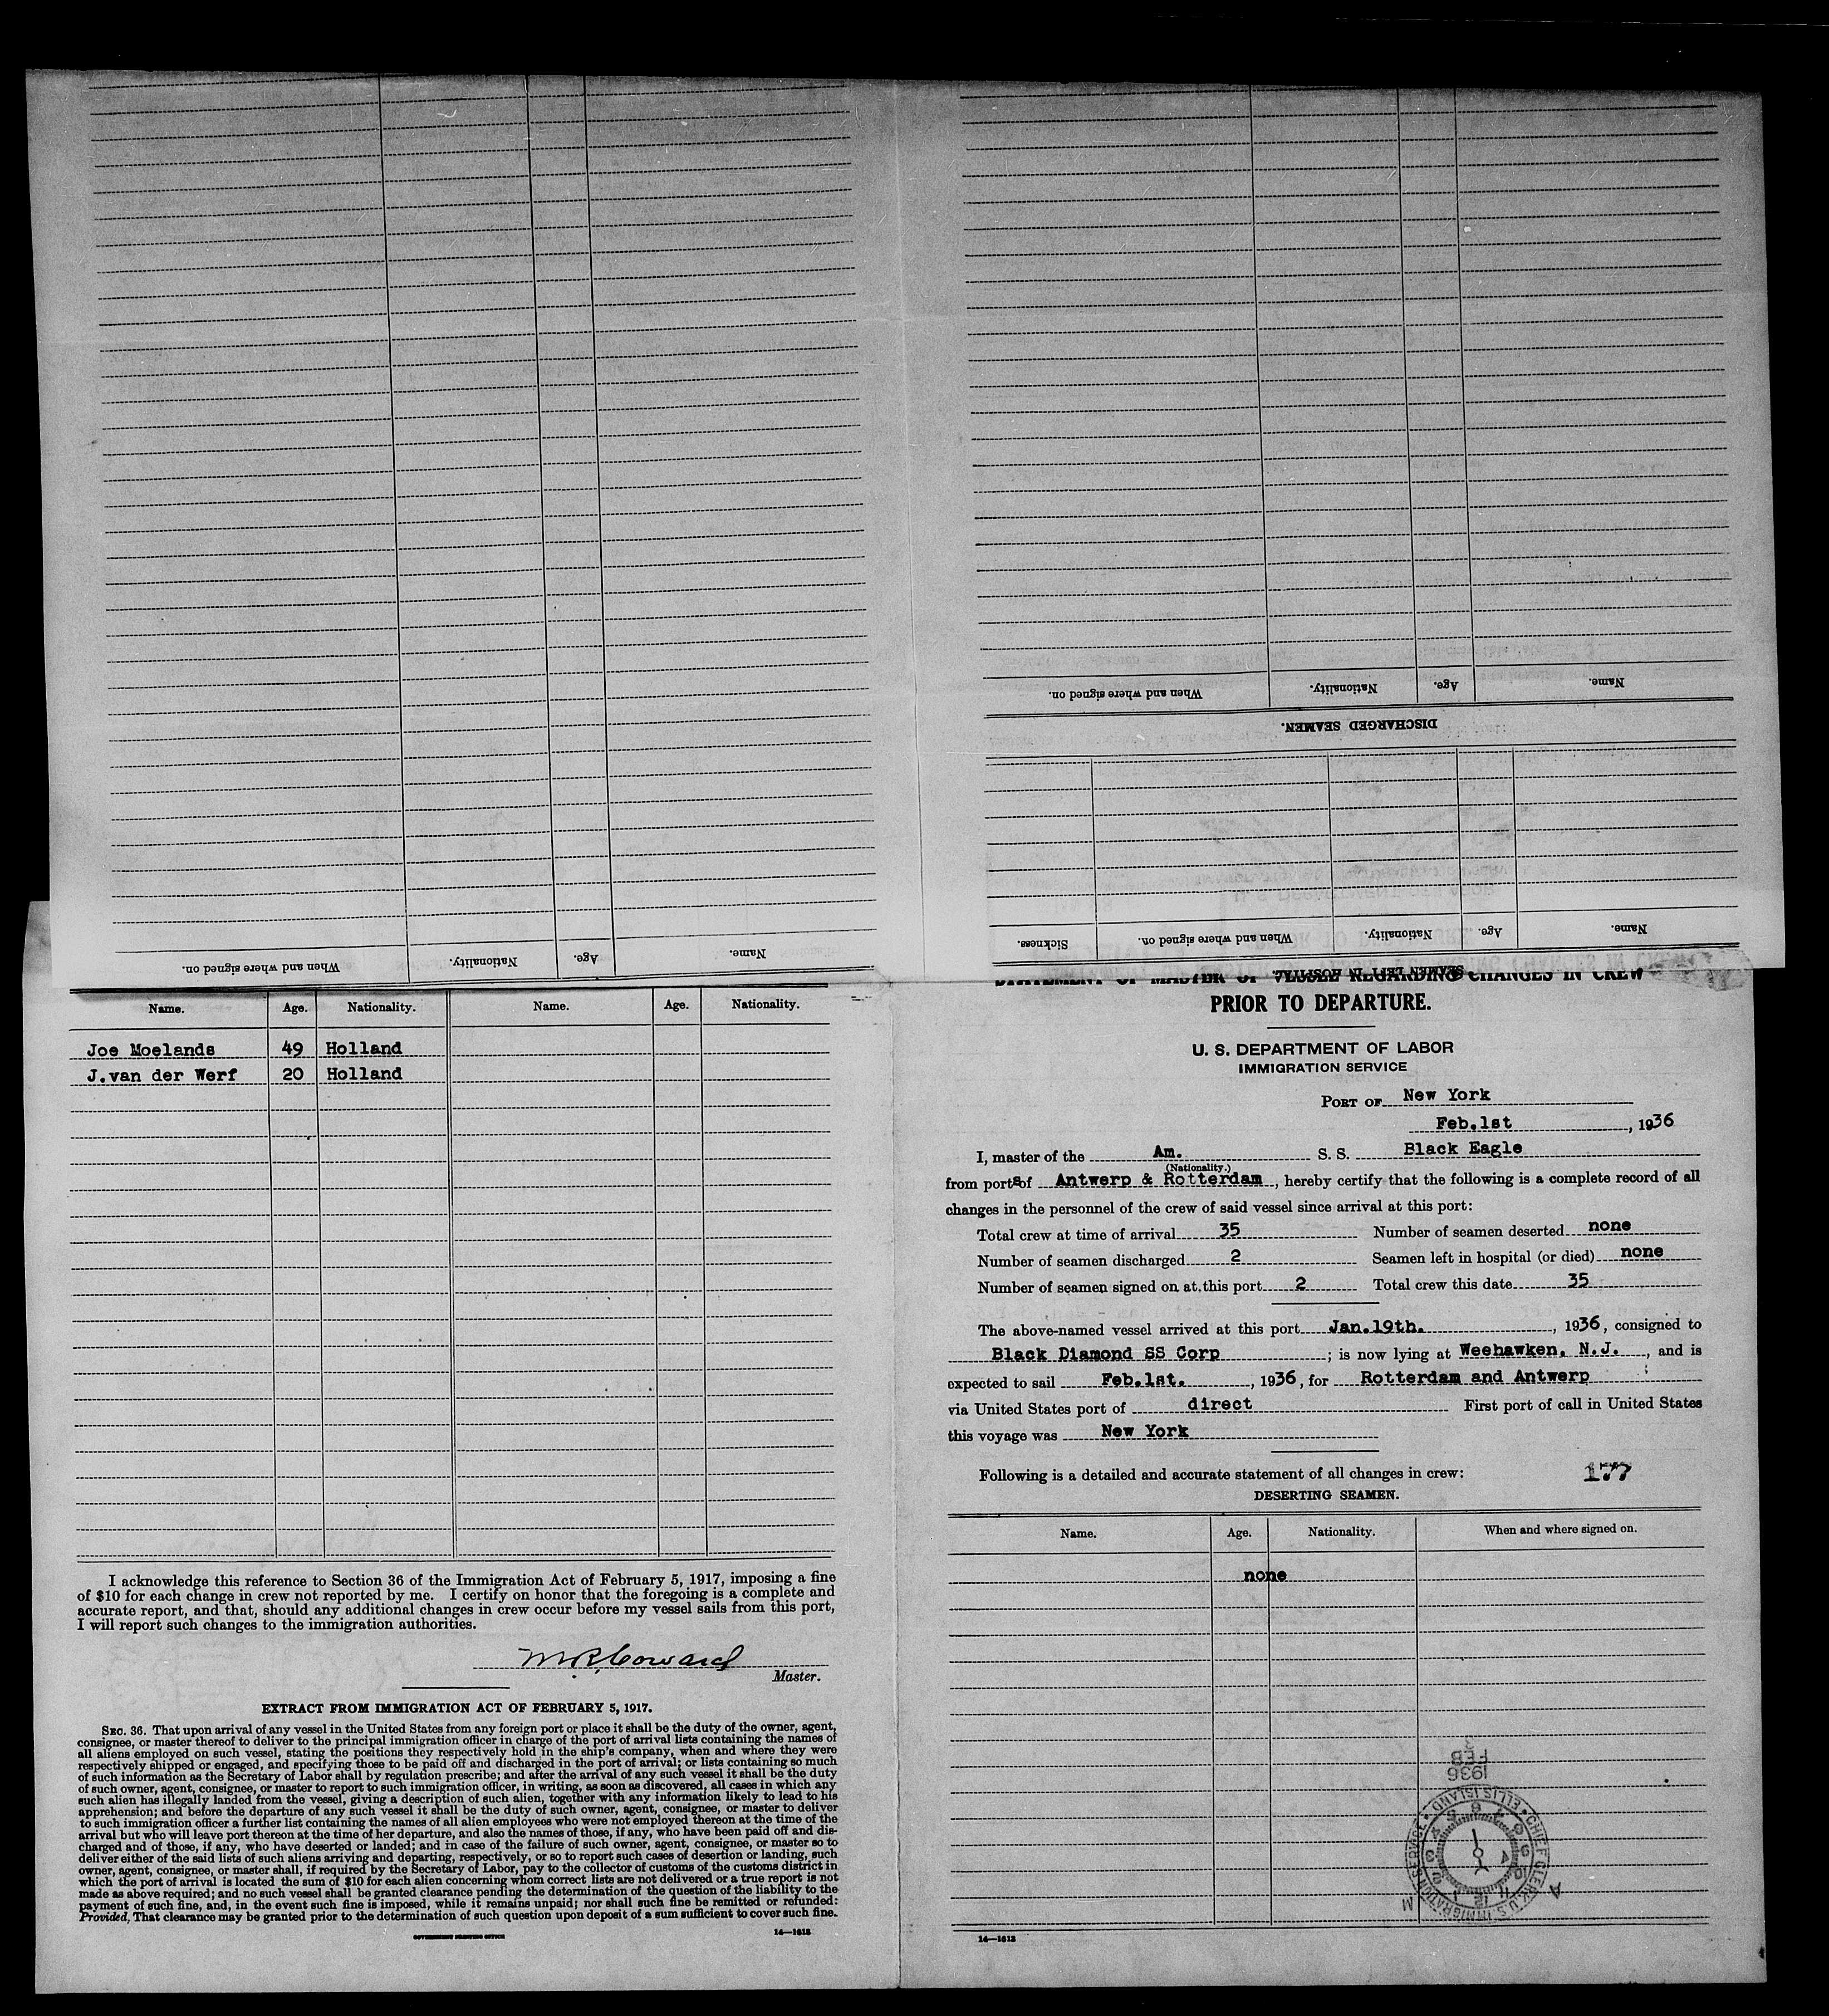 When and where signed on. Nationality. Age. Name.
DISCHARGED SEAMEN.
Name. Age. Nationality. When and where signed on.
SEAMEN LEFT IN HOSPITAL.
Name. Age. Nationality. When and where signed on. Sickness.
Name. Age. Nationality. Name. Age. Nationality.
Joe Moelands 49 Holland
J.van der Werf 20 Holland
I acknowledge this reference to Section 36 of the Immigration Act of February 5, 1917, imposing a fine
of $10 for each change in crew not reported by me. I certify on honor that the foregoing is a complete and
accurate report, and that, should any additional changes in crew occur before my vessel sails from this port,
I will report such changes to the immigration authorities.
M.R. Coward
Master.
EXTRACT FROM IMMIGRATION ACT OF FEBRUARY 5, 1917.
SEC. 36. That upon arrival of any vessel in the United States from any foreign port or place it shall be the duty of the owner, agent,
consignee, or master thereof to deliver to the principal immigration officer in charge of the port of arrival lists containing the names of
all aliens employed on such vessel, stating the positions they respectively hold in the ship's company, when and where they were
respectively shipped or engaged, and specifying those to be paid off and discharged in the port of arrival; or lists containing so much
of such information as the Secretary of Labor shall by regulation prescribe; and after the arrival of any such vessel it shall be the duty
of such owner, agent, consignee, or master to report to such immigration officer, in writing, as soon as discovered, all cases in which any
such alien has illegally landed from the vessel, giving a description of such alien, together with any information likely to lead to his
apprehension; and before the departure of any such vessel it shall be the duty of such owner, agent, consignee, or master to deliver
to such immigration officer a further list containing the names of all alien employees who were not employed thereon at the time of the
arrival but who will leave port thereon at the time of her departure, and also the names of those, if any, who have been paid off and dis-
charged and of those, if any, who have deserted or landed; and in case of the failure of such owner, agent, consignee, or master so to
deliver either of the said lists of such aliens arriving and departing, respectively, or so to report such cases of desertion or landing, such
owner, agent, consignee, or master shall, if required by the Secretary of Labor, pay to the collector of customs of the customs district in
which the port of arrival is located the sum of $10 for each alien concerning whom correct lists are not delivered or a true report is not
made as above required; and no such vessel shall be granted clearance pending the determination of the question of the liability to the
payment of such fine, and, in the event such fine is imposed, while it remains unpaid; nor shall such fine be remitted or refunded:
Provided, That clearance may be granted prior to the determination of such question upon deposit of a sum sufficient to cover such fine.
14—1613
GOVERNMENT PRINTING OFFICE
STATEMENT OF MASTER OF VESSEL REGARDING CHANGES IN CREW
PRIOR TO DEPARTURE.
U. S. DEPARTMENT OF LABOR
IMMIGRATION SERVICE
PORT OF New York
Feb.1st, 1936
I, master of the Am. S. S. Black Eagle
(Nationality.)
from ports of Antwerp & Rotterdam, hereby certify that the following is a complete record of all
changes in the personnel of the crew of said vessel since arrival at this port:
Total crew at time of arrival 35 Number of seamen deserted none
Number of seamen discharged 2 Seamen left in hospital (or died) none
Number of seamen signed on at this port 2 Total crew this date 35
The above-named vessel arrived at this port Jan.19th., 1936, consigned to
Black Diamond SS Corp; is now lying at Weehawken. N.J., and is
expected to sail Feb.1st., 1936, for Rotterdam and Antwerp
via United States port of direct First port of call in United States
this voyage was New York
Following is a detailed and accurate statement of all changes in crew: 177
DESERTING SEAMEN.
Name. Age. Nationality. When and where signed on.
none
1936
FEB
CHIEF CLERK U.S. IMMIGRATION SERVICE
ELLIS ISLAND
A M
14—1613